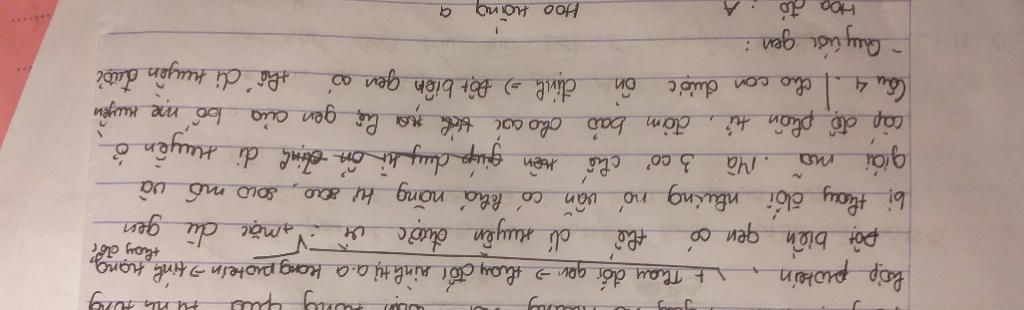 hợp protein. + Thay đổi gen => thay đổi trình tự a.a trong protein => tính trạng thay đổi
Đột biến gen có thể di truyền được vì: + mặc dù gen
bị thay đổi nhưng nó vẫn có khả năng tự sao, sao mã và
giải mã. Mà 3 cơ chế trên giúp duy trì ổn định di truyền ở
cấp độ phân tử, đảm bảo cho các gen của bố mẹ truyền
Câu 4 cho con được ổn định => Đột biến gen có thể di truyền được
- Quy ước gen:
Hoa đỏ: A Hoa trắng a